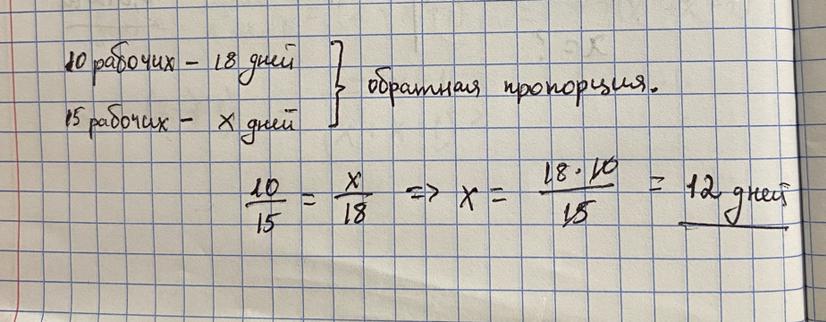 10 рабочих - 18 дней
15 рабочих - x дней } обратная пропорция.
10/15 = x/18 => x = 18·10/15 = 12 дней